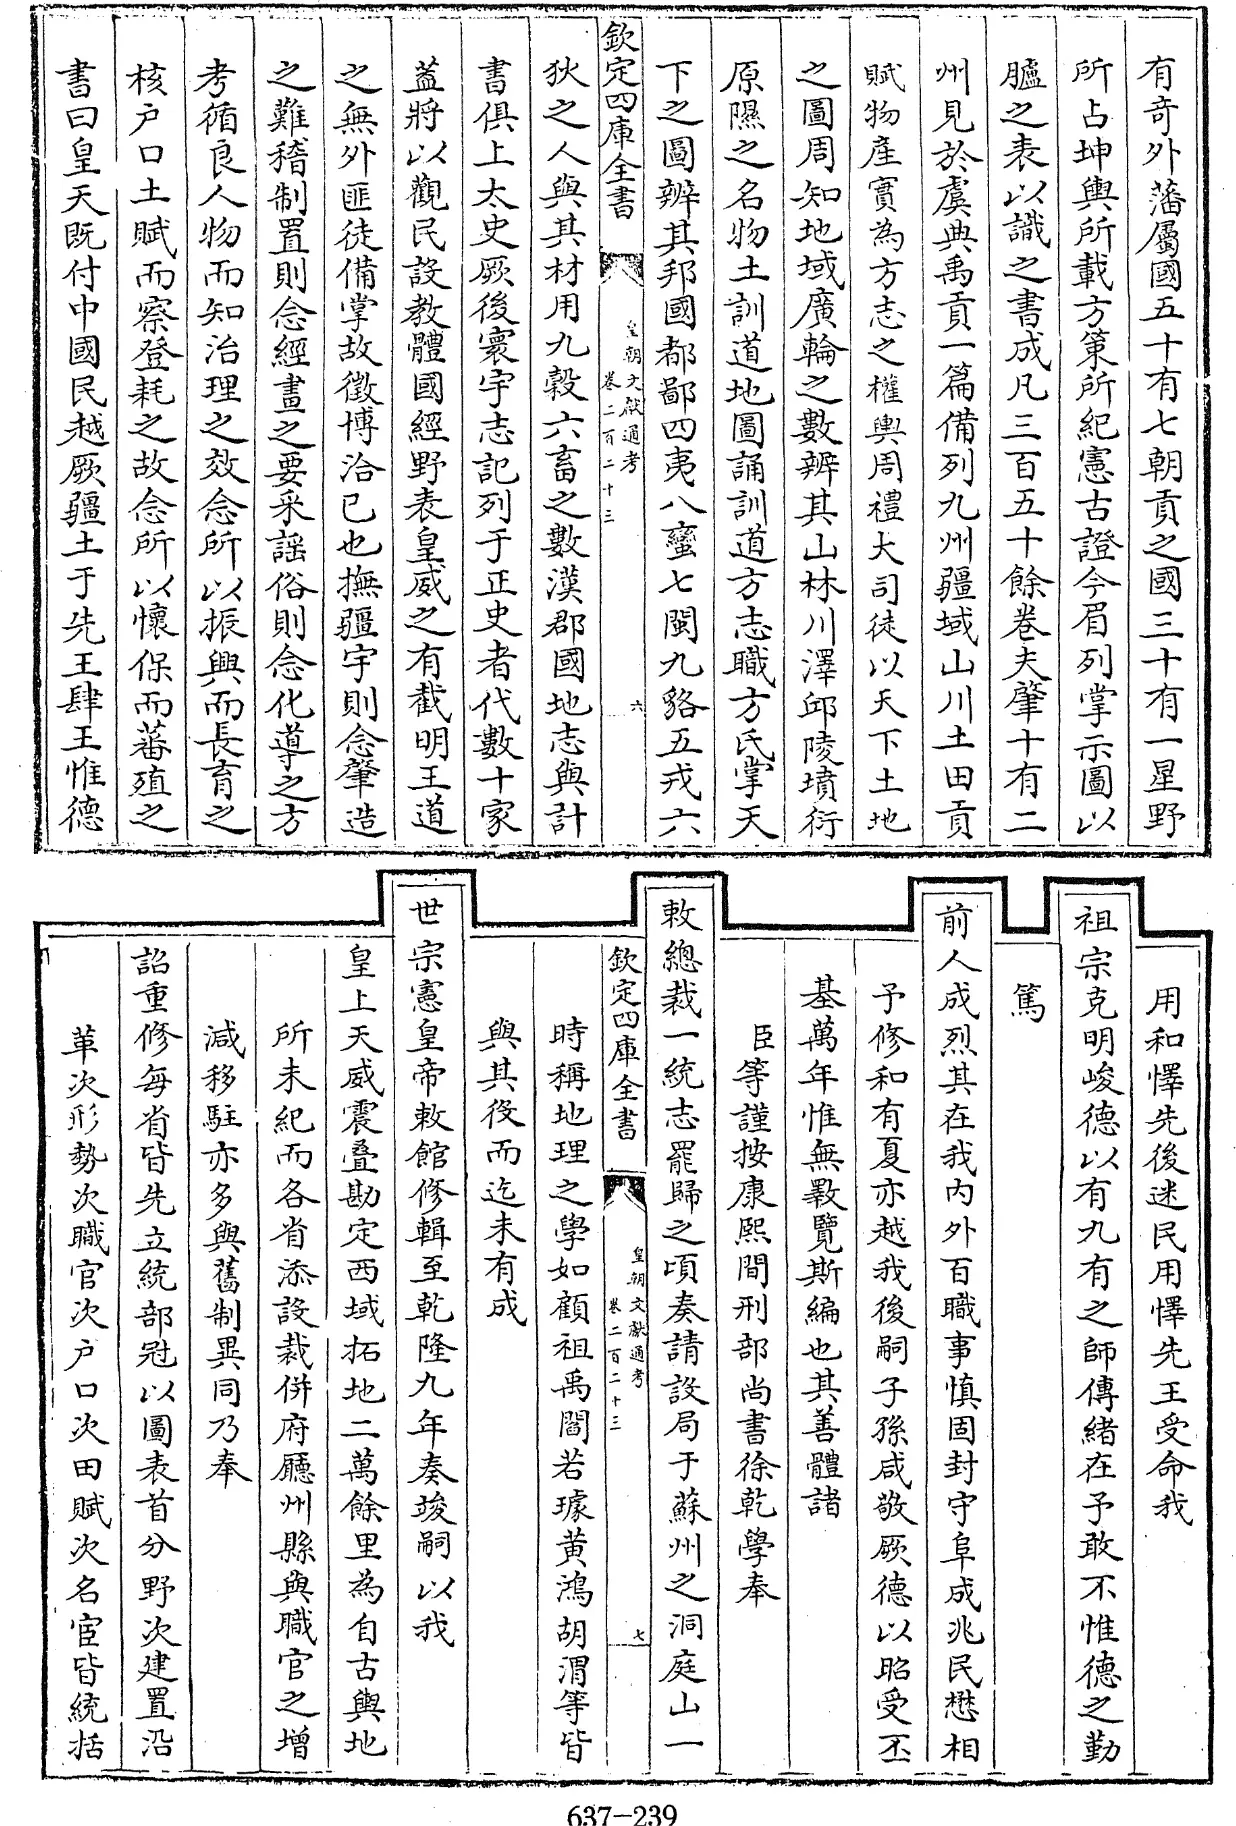 有奇外藩屬國五十有七朝貢之國三十有一星野
所占坤輿所載方策所紀憲古證今眉列掌示圖以
臚之表以識之書成凡三百五十餘卷夫肇十有二
州見於虞典禹貢一篇備列九州疆域山川土田貢
賦物產實為方志之權輿周禮大司徒以天下土地
之圖周知地域廣輪之數辨其山林川澤邱陵墳衍
原隰之名物土訓道地圖誦訓道方志職方氏掌天
下之圖辨其邦國都鄙四夷八蠻七閩九貉五戎六
欽定四庫全書
皇朝文獻通考
卷二百二十三
六
狄之人與其材用九穀六畜之數漢郡國地志與計
書俱上太史厥後寰宇志記列于正史者代數十家
葢將以觀民設教體國經野表皇威之有截明王道
之無外匪徒備掌故徵博洽已也撫疆宇則念肇造
之難稽制置則念經畫之要釆謡俗則念化導之方
考循良人物而知治理之效念所以振興而長育之
核户口土賦而察登耗之故念所以懷保而蕃殖之
書曰皇天既付中國民越厥疆土于先王肆王惟德
用和懌先後迷民用懌先王受命我
祖宗克明峻德以有九有之師傳緒在予敢不惟德之勤
篤
前人成烈其在我内外百職事慎固封守阜成兆民懋相
予修和有夏亦越我後嗣子孫咸敬厥德以昭受丕
基萬年惟無斁覽斯編也其善體諸
臣等謹按康熙間刑部尚書徐乾學奉
敕總裁一統志罷歸之頃奏請設局于蘇州之洞庭山一
欽定四庫全書
皇朝文獻通考
卷二百二十三
七
時稱地理之學如顧祖禹閻若璩黄鴻胡渭等皆
與其役而迄未有成
世宗憲皇帝敕館修輯至乾隆九年奏竣嗣以我
皇上天威震疊勘定西域拓地二萬餘里為自古輿地
所未紀而各省添設裁併府廳州縣與職官之增
減移駐亦多與舊制異同乃奉
詔重修每省皆先立統部冠以圖表首分野次建置沿
革次形勢次職官次户口次田賦次名宦皆統括
637-239